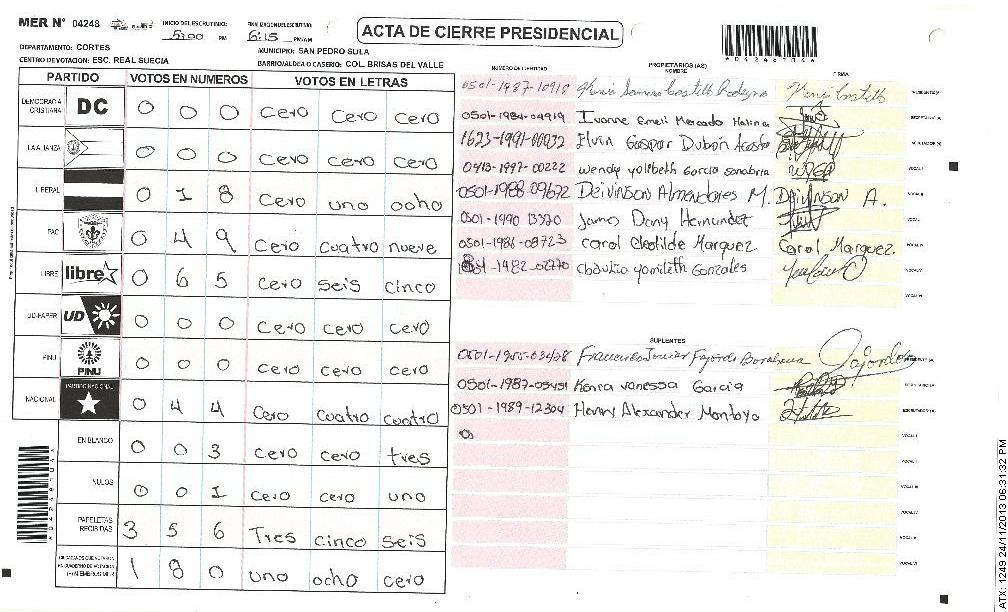 MER N° 04248
INICIO DEL ESCRUTINIO: 5:00 PM
FINALIZACION DEL ESCRUTINIO: 6:15 PM/AM
ACTA DE CIERRE PRESIDENCIAL
*04248704*
DEPARTAMENTO: CORTES
MUNICIPIO: SAN PEDRO SULA
CENTRO DE VOTACION: ESC. REAL SUECIA
BARRIO/ALDEA O CASERIO: COL BRISAS DEL VALLE
PARTIDO VOTOS EN NUMEROS VOTOS EN LETRAS
DEMOCRACIA CRISTIANA DC 0 0 0 Cero Cero Cero
LA ALIANZA 0 0 0 Cero Cero Cero
LIBERAL 0 1 8 Cero uno ocho
PAC 0 4 9 Cero cuatro nueve
LIBRE libre 0 6 5 Cero seis cinco
UD-FAPER UD 0 0 0 Cero Cero cero
PINU PINU 0 0 0 Cero Cero Cero
NACIONAL PARTIDO NACIONAL 0 4 4 Cero Cuatro cuatro
EN BLANCO 0 0 3 Cero cero tres
NULOS 0 0 1 Cero cero uno
PAPELETAS RECIBIDAS 3 5 6 Tres cinco seis
CIUDADANOS QUE VOTARON EN CUADERNO DE VOTACION (+) MIEMBROS MER 1 8 0 uno ocho cero
PROPIETARIOS (AS)
NUMERO DE IDENTIDAD NOMBRE FIRMA
0501-1987-10918
0501-1984-04919 Ivonne Emeli Mercado Molina
1623-1991-00032 Elvin Gaspar Dubon Acosta
0413-1997-00222 Wendy yolibeth Garcia sanabria
0501-1988-09672 Deivinson Almendares M. Deivinson A.
0501-1990 13320 James Dany Hernandez
0501-1986-08723 Carol Cleotilde Marquez Carol Marquez.
1982-02270 yamileth Gonzales
SUPLENTES
Francisco Javier Fajardo
0501-1987-05451 Kenia vanessa Garcia
0501-1989-12304 Henry Alexander Montoya
ATX: 1249 24/11/2013 06:31:32 PM